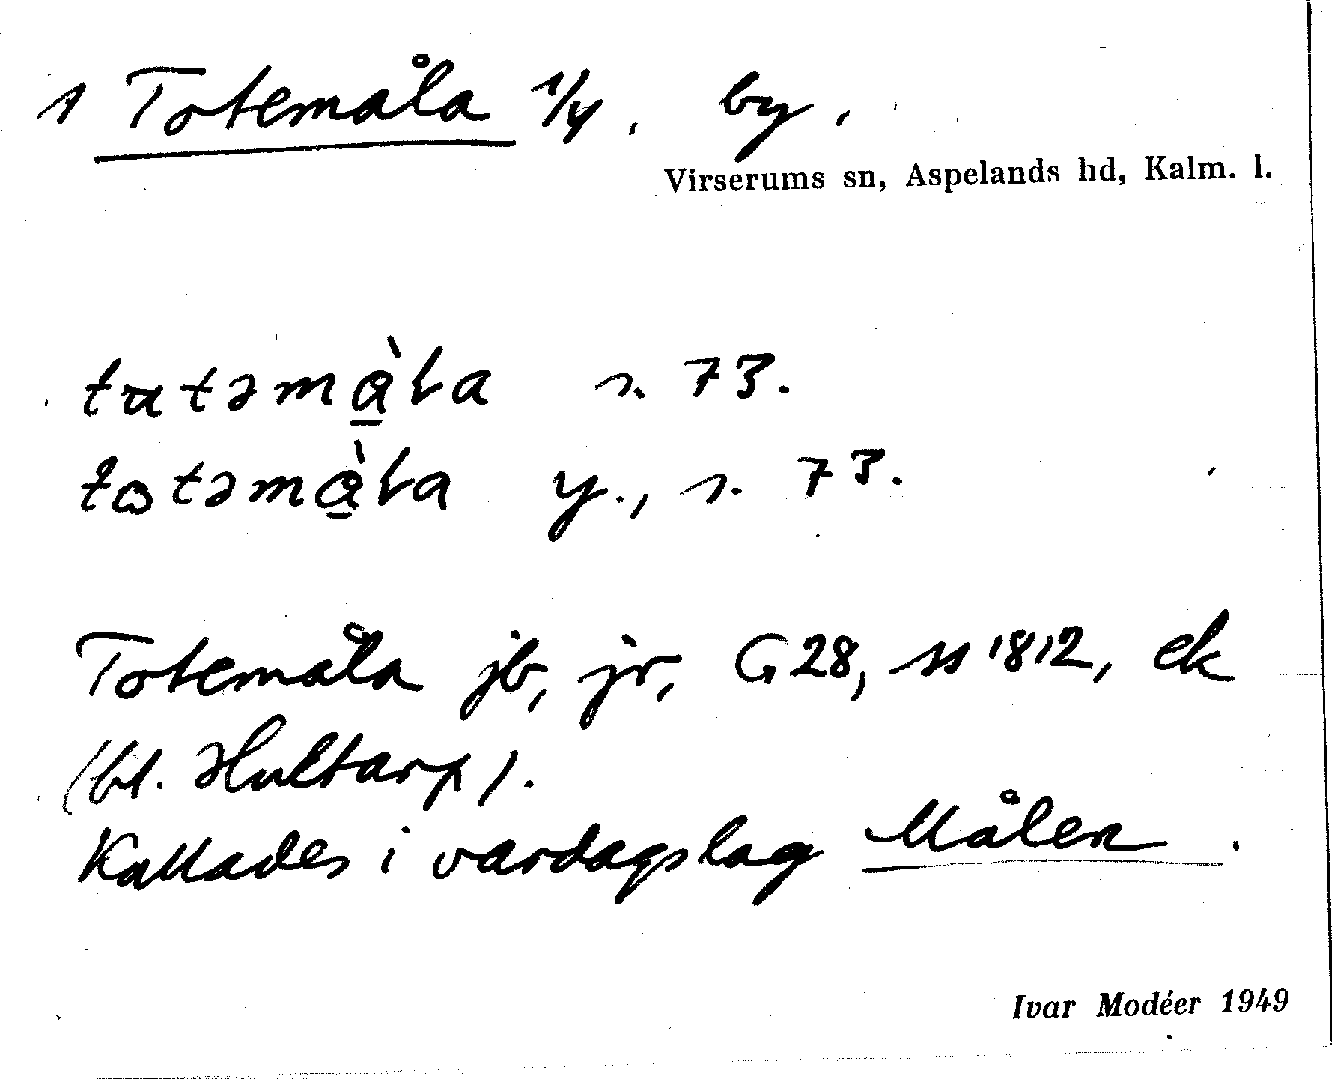 1 Totemåla 1/4. by.
Virserums sn, Aspelands hd, Kalm. l.
tutəmàla s. 73.
totəmàla y., s. 73.
Totemåla jb, jr, G28, ss 1812, ek
(bl. Hultarp).
Kallades i vardagslag Målen.
Ivar Modéer 1949